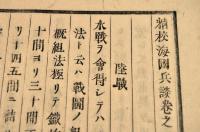 精校海國兵談卷之
陸戰
水戰ヲ會得シテハ
法ト云ハ戰鬪ノ組
概組法極リテ鐵
十間ヨリ三十間
リ十四五間ニ詰